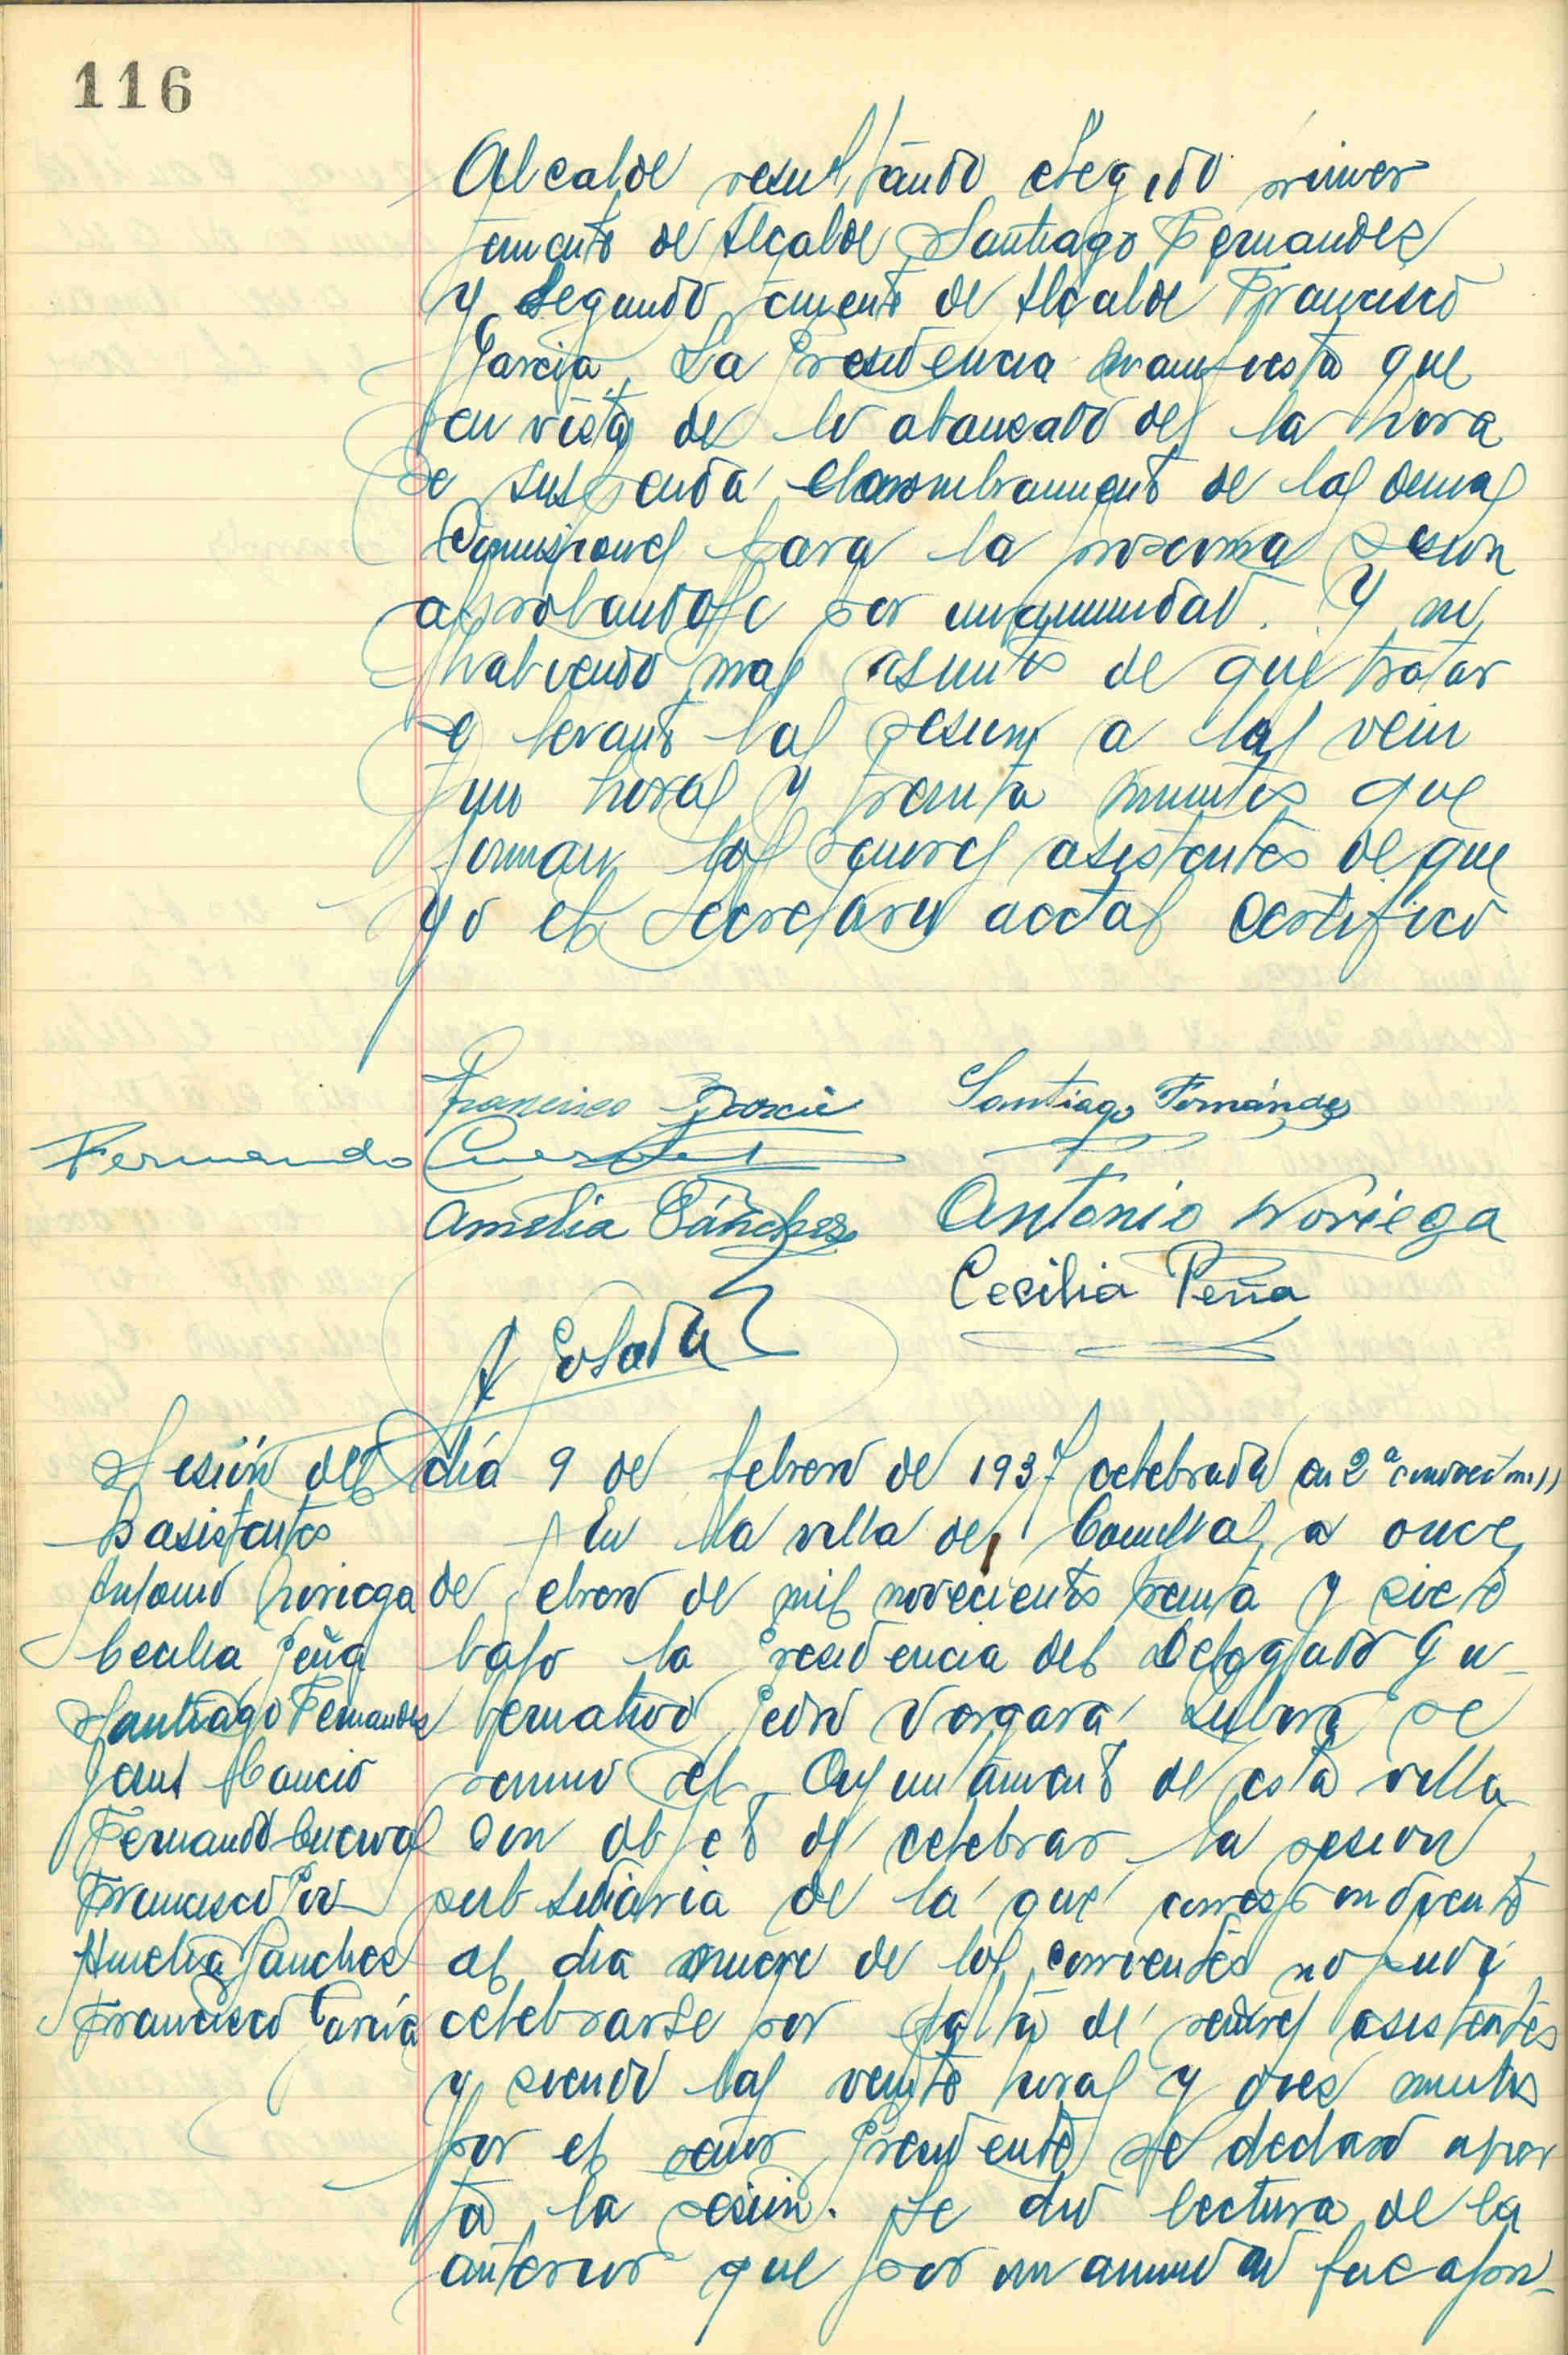 116
Alcalde resultando elegido primer
teniente de Alcalde Santiago Fernandez
y segundo teniente de Alcalde Francisco
Garcia. La Presidencia manifiesta que
en vista de lo abanzado de la hora
se suspenda el nombramiento de las demas
Comisiones para la proxima sesion
aprobandose por unanimidad. Y no
habiendo mas asuntos de que tratar
se levanto la sesion a las vein
tiuno horas y treinta minutos que
firman los señores asistentes de que
yo el Secretario acctal certifico
Francisco Garcia Santiago Fernández
Fernando Cuerval
Amelia Sánchez Antonio Noriega
Cecilia Peña
A Posada
Sesión del día 9 de febrero de 1937 celebrada en 2ª
asistentes En la villa de a once
Antonio Noriega de febrero de mil novecientos treinta y siete
Cecilia Peña bajo la Presidencia del Delegado Gu-
Santiago Fernandez bernativo Pedro Vergara se
Cancio reunio el Ayuntamiento de esta villa
Fernando Cuerval con objeto de celebrar la sesion
Francisco subsidiaria de la que correspondiente
Amelia Sanchez al dia nueve de los corrientes no pudo
Francisco García celebrarse por falta de señores asistentes
y siendo las veinte horas y diez minutos
por el señor Presidente se declaro abier
ta la sesión. Se dio lectura de la
anterior que por unanimidad fue apro-